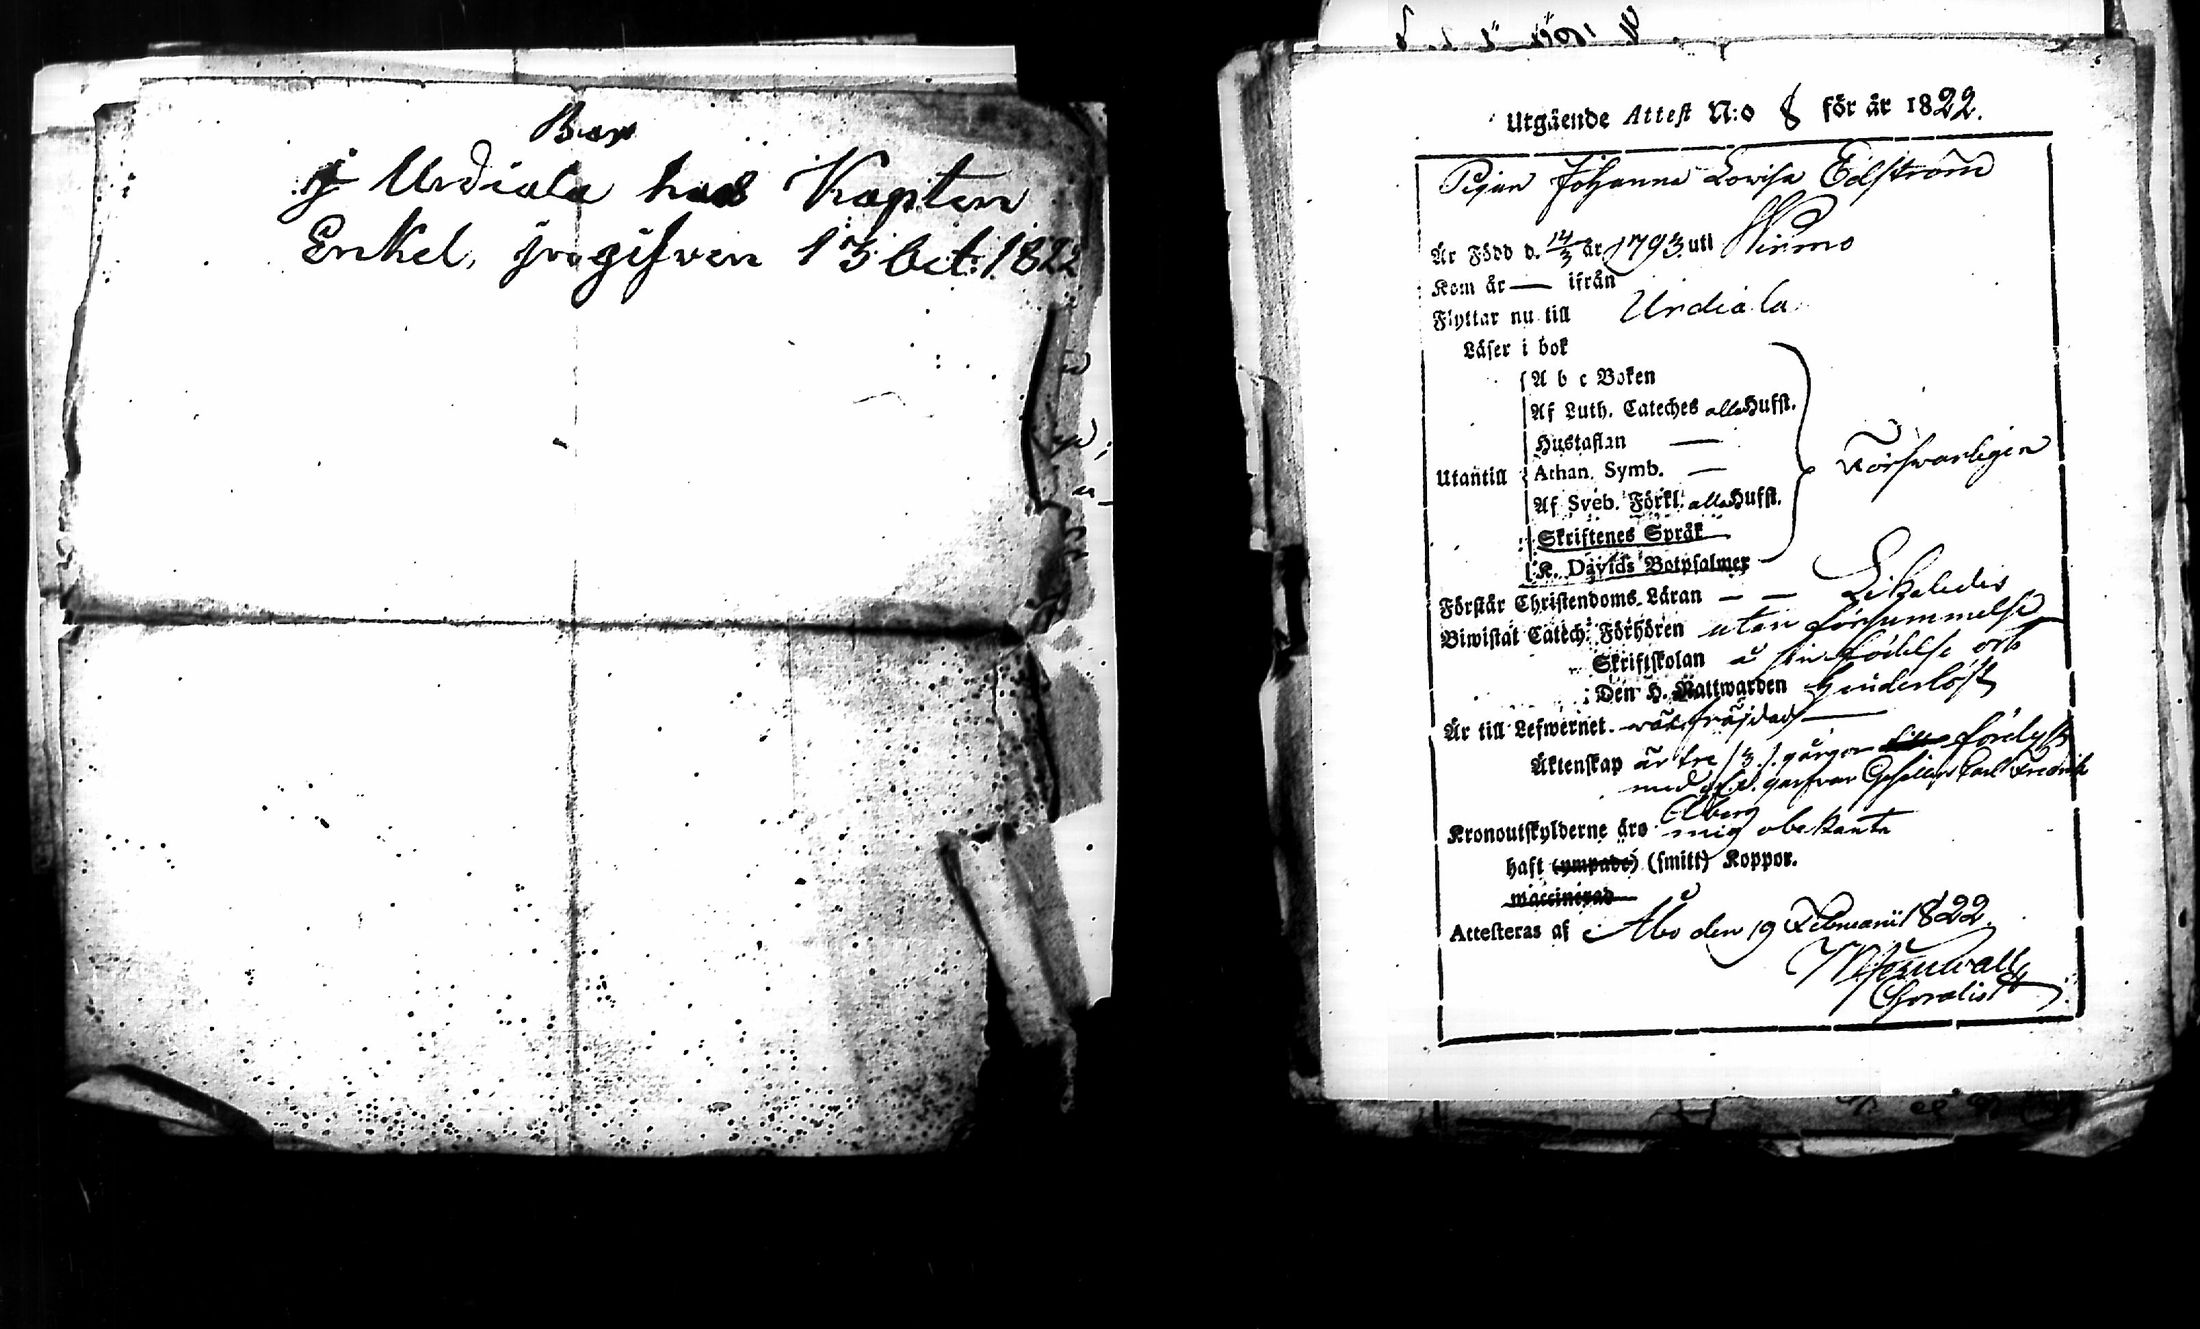 Bor
i Urdiala hos Kapten
Enkel, ingifven 13 Oct: 1822
Utgående Attest N:o 8 för år 1822.
Pigan Johanna Lovisa Edström
Är Född d. 14/3 år 1793. uti Wirmo
Kom år — ifrån
Flyttar nu till Urdiala
Läser i bok
A b c Boken
Af Luth. Cateches alla Hufst.
Hustaflan —
Utantill Athan. Symb. — Försvarligen
Af Sveb. Förkl. alla Hufst.
Skriftenes Språk
K. Davids Botpsalmer
Förstår Christendoms Läran — — Likaledes
Biwistat Catech. Förhören utan försummelse
Skriftskolan å sin födelse ort
Den H. Nattwarden
Är till Lefwernet wälfräjdad —
Äktenskap är tre (3.) gånger förelyst
med Gesällen Carl Fredrik
Kronoutskylderne äro mig obekanta
haft (ympade) (smitt) Koppor.
waccinerad
Attesteras af Åbo den 19 Februarii 1822.